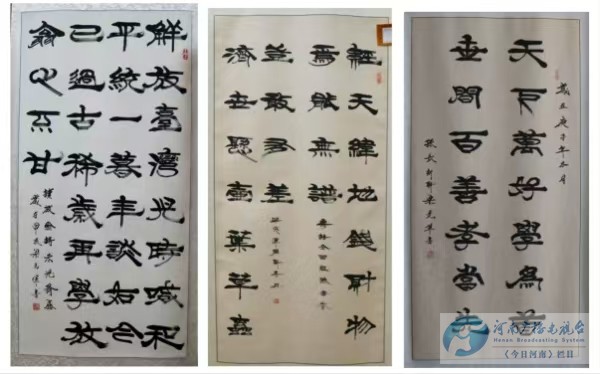 解放臺灣兒時喊和
平統一暮年談如今
已過古稀歲再學放
翁心不甘
經天緯地錢財物
焉能無譜
並敢多差
濟世懸壺葉草蟲
歲在庚子年冬月
天下萬好學為首
世間百善孝當先
河南广播电视台
Henan Broadcasting System
《今日河南》栏目